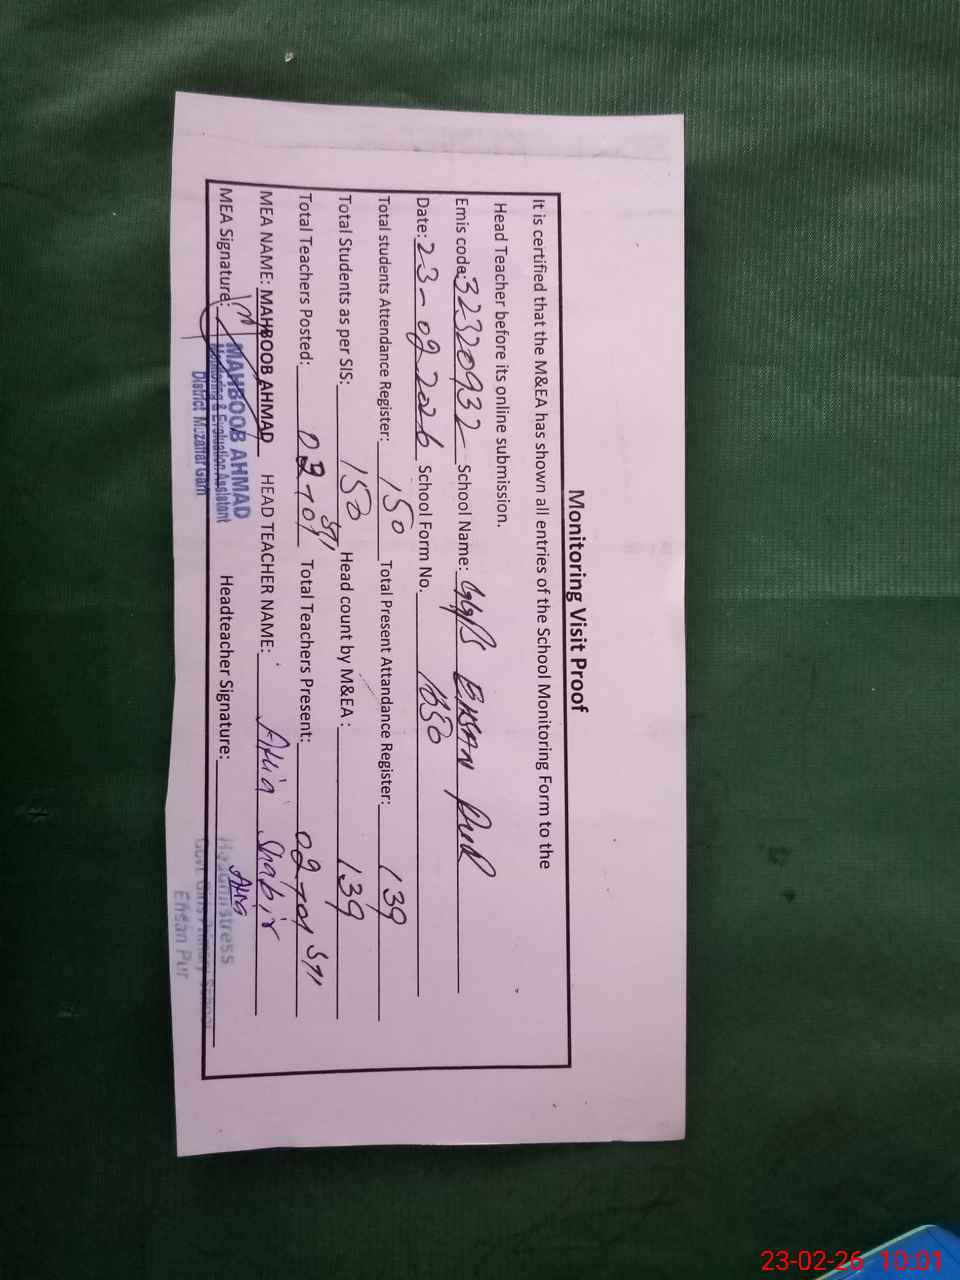 Monitoring Visit Proof
It is certified that the M&EA has shown all entries of the School Monitoring Form to the
Head Teacher before its online submission.
Emis code: 32320932 School Name: GGPS EHSAN PUR
Date: 23-02-2026 School Form No. 1650
Total students Attendance Register: 150 Total Present Attandance Register: 139
Total Students as per SIS: 150 Head count by M&EA: 139
Total Teachers Posted: 02+01 Total Teachers Present: 02+01
MEA NAME: MAHBOOB AHMAD HEAD TEACHER NAME: Shabir
MEA Signature: Headteacher Signature:
MAHBOOB AHMAD
Monitoring & Evaluation Assistant
District Muzaffar Garh
Headmistress
Govt Girls Primary School
Ehsan Pur
23-02-26 10:01